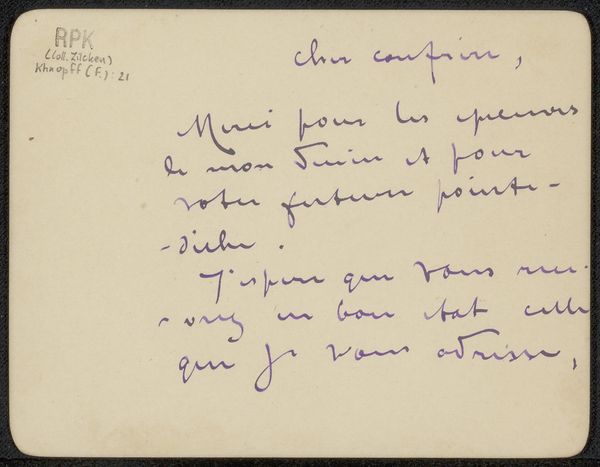 RPK
(Coll. Zilcken)
Khnopff (F.): 21
Cher confrère,
Merci pour les épreuves
de mon dessin et pour
votre pointe-
-sèche.
J'espère que vous rece-
-vrez en bon état celle
que je vous adresse,